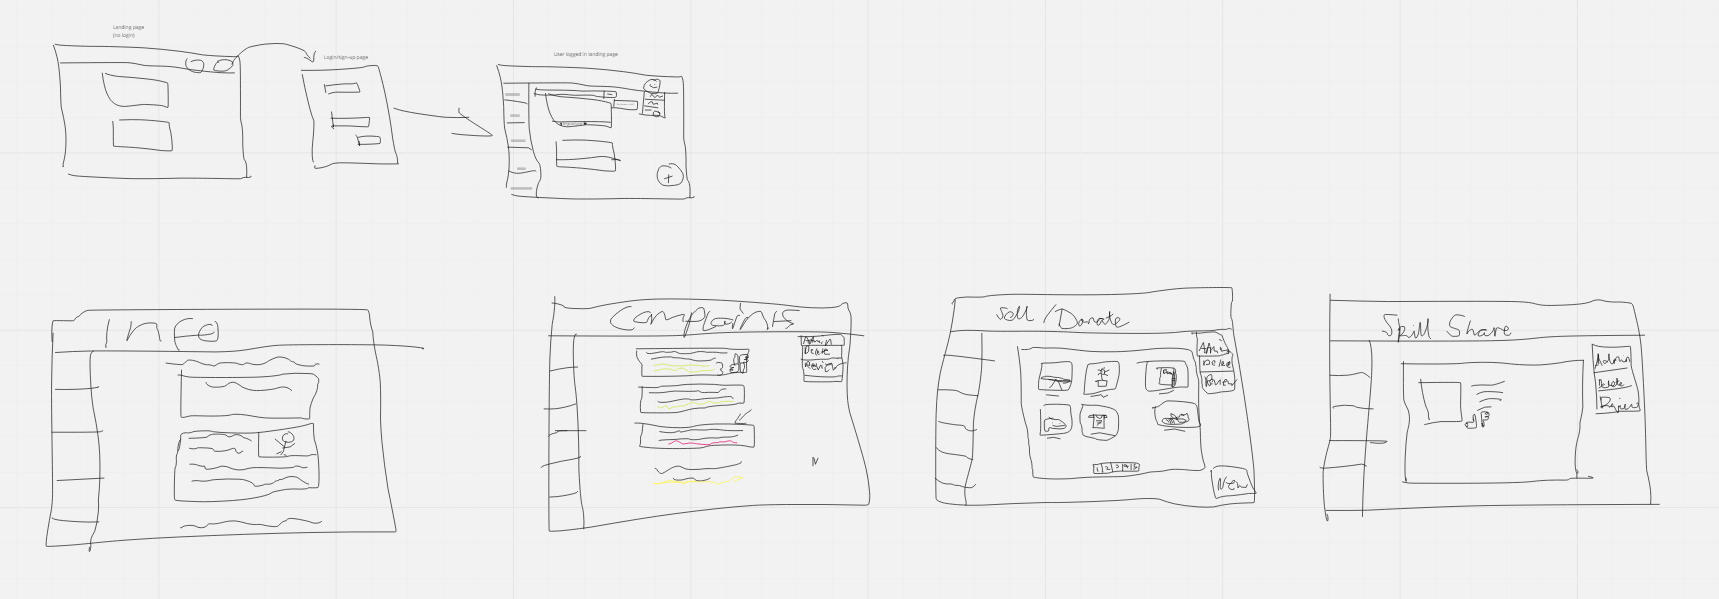 Landing page
(no login)
Login/sign-up page
User logged in landing page
Info
Complaints
Admin
Delete
Review
N
Sell / Donate
Admin
Delete
Review
1 2 3 4 5
New
Skill Share
Admin
Delete
Review